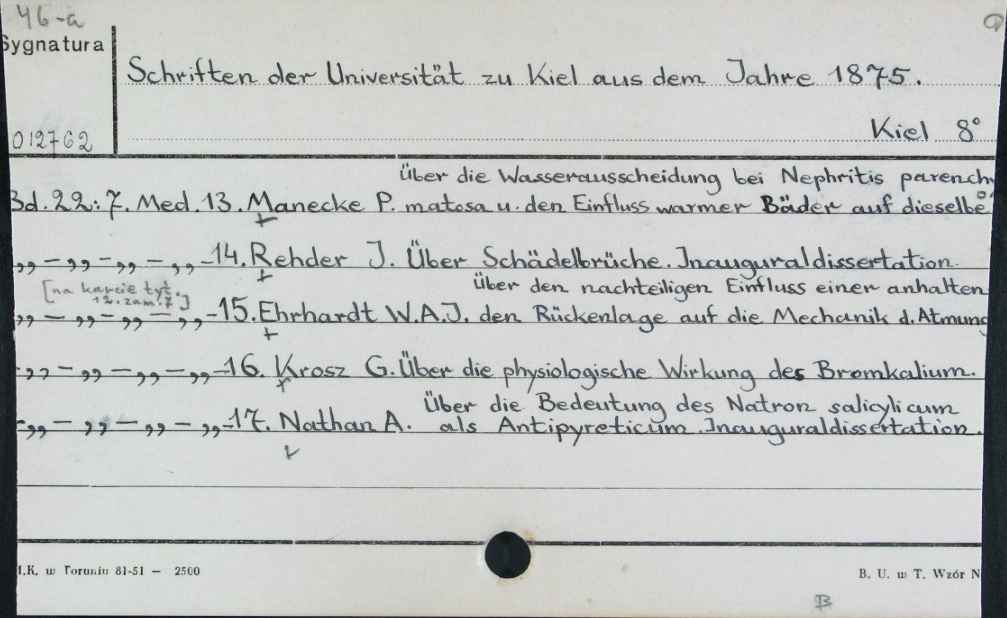 46-a
Sygnatura
Schriften der Universität zu Kiel aus dem Jahre 1875.
012762
Kiel 8°
Über die Wasserausscheidung bei Nephritis parench
Bd. 22: 7. Med. 13. Manecke P. matosa u. den Einfluss warmer Bäder auf dieselbe
„ – „ – „ – „ – 14. Rehder J. Über Schädelbrüche. Inauguraldissertation.
[na karcie tyt. Über den nachteiligen Einfluss einer anhalten
12. zam. 7]
„ – „ – „ – „ – 15. Ehrhardt W.A.J. den Rückenlage auf die Mechanik d. Atmung
„ – „ – „ – „ – 16. Krosz G. Über die physiologische Wirkung des Bromkalium.
Über die Bedeutung des Natron salicylicum
„ – „ – „ – „ – 17. Nathan A. als Antipyreticum. Inauguraldissertation.
I.K. w Toruniu 81-51 – 2500
B. U. w T. Wzór N
B